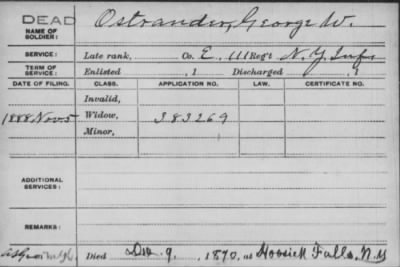 DEAD
NAME OF SOLDIER: Ostrander, George W.
SERVICE: Late rank, Co. E, 111 Reg't N.Y. Inf.
TERM OF SERVICE: Enlisted , 1 Discharged , 1
DATE OF FILING. CLASS. APPLICATION NO. LAW. CERTIFICATE NO.
Invalid,
1888 Nov 5 Widow, 383269
Minor,
ADDITIONAL SERVICES:
REMARKS:
Died 9, 1870, at Hoosick Falls, N.Y